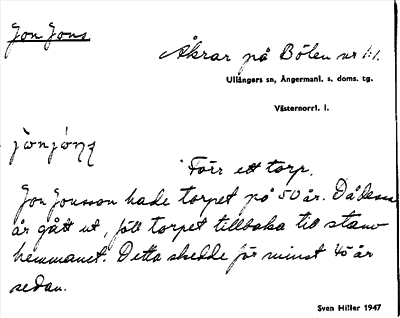 Jon Jons
Åkrar på Bölen nr 1:1.
Ullångers sn, Ångermanl. s. doms. tg.
Västernorrl. l.
Förr ett torp.
Jon Jonsson hade torpet på 50 år. Då dessa
år gått ut, föll torpet tillbaka till stam-
hemmanet. Detta skedde för minst 45 år
sedan.
Sven Hiller 1947